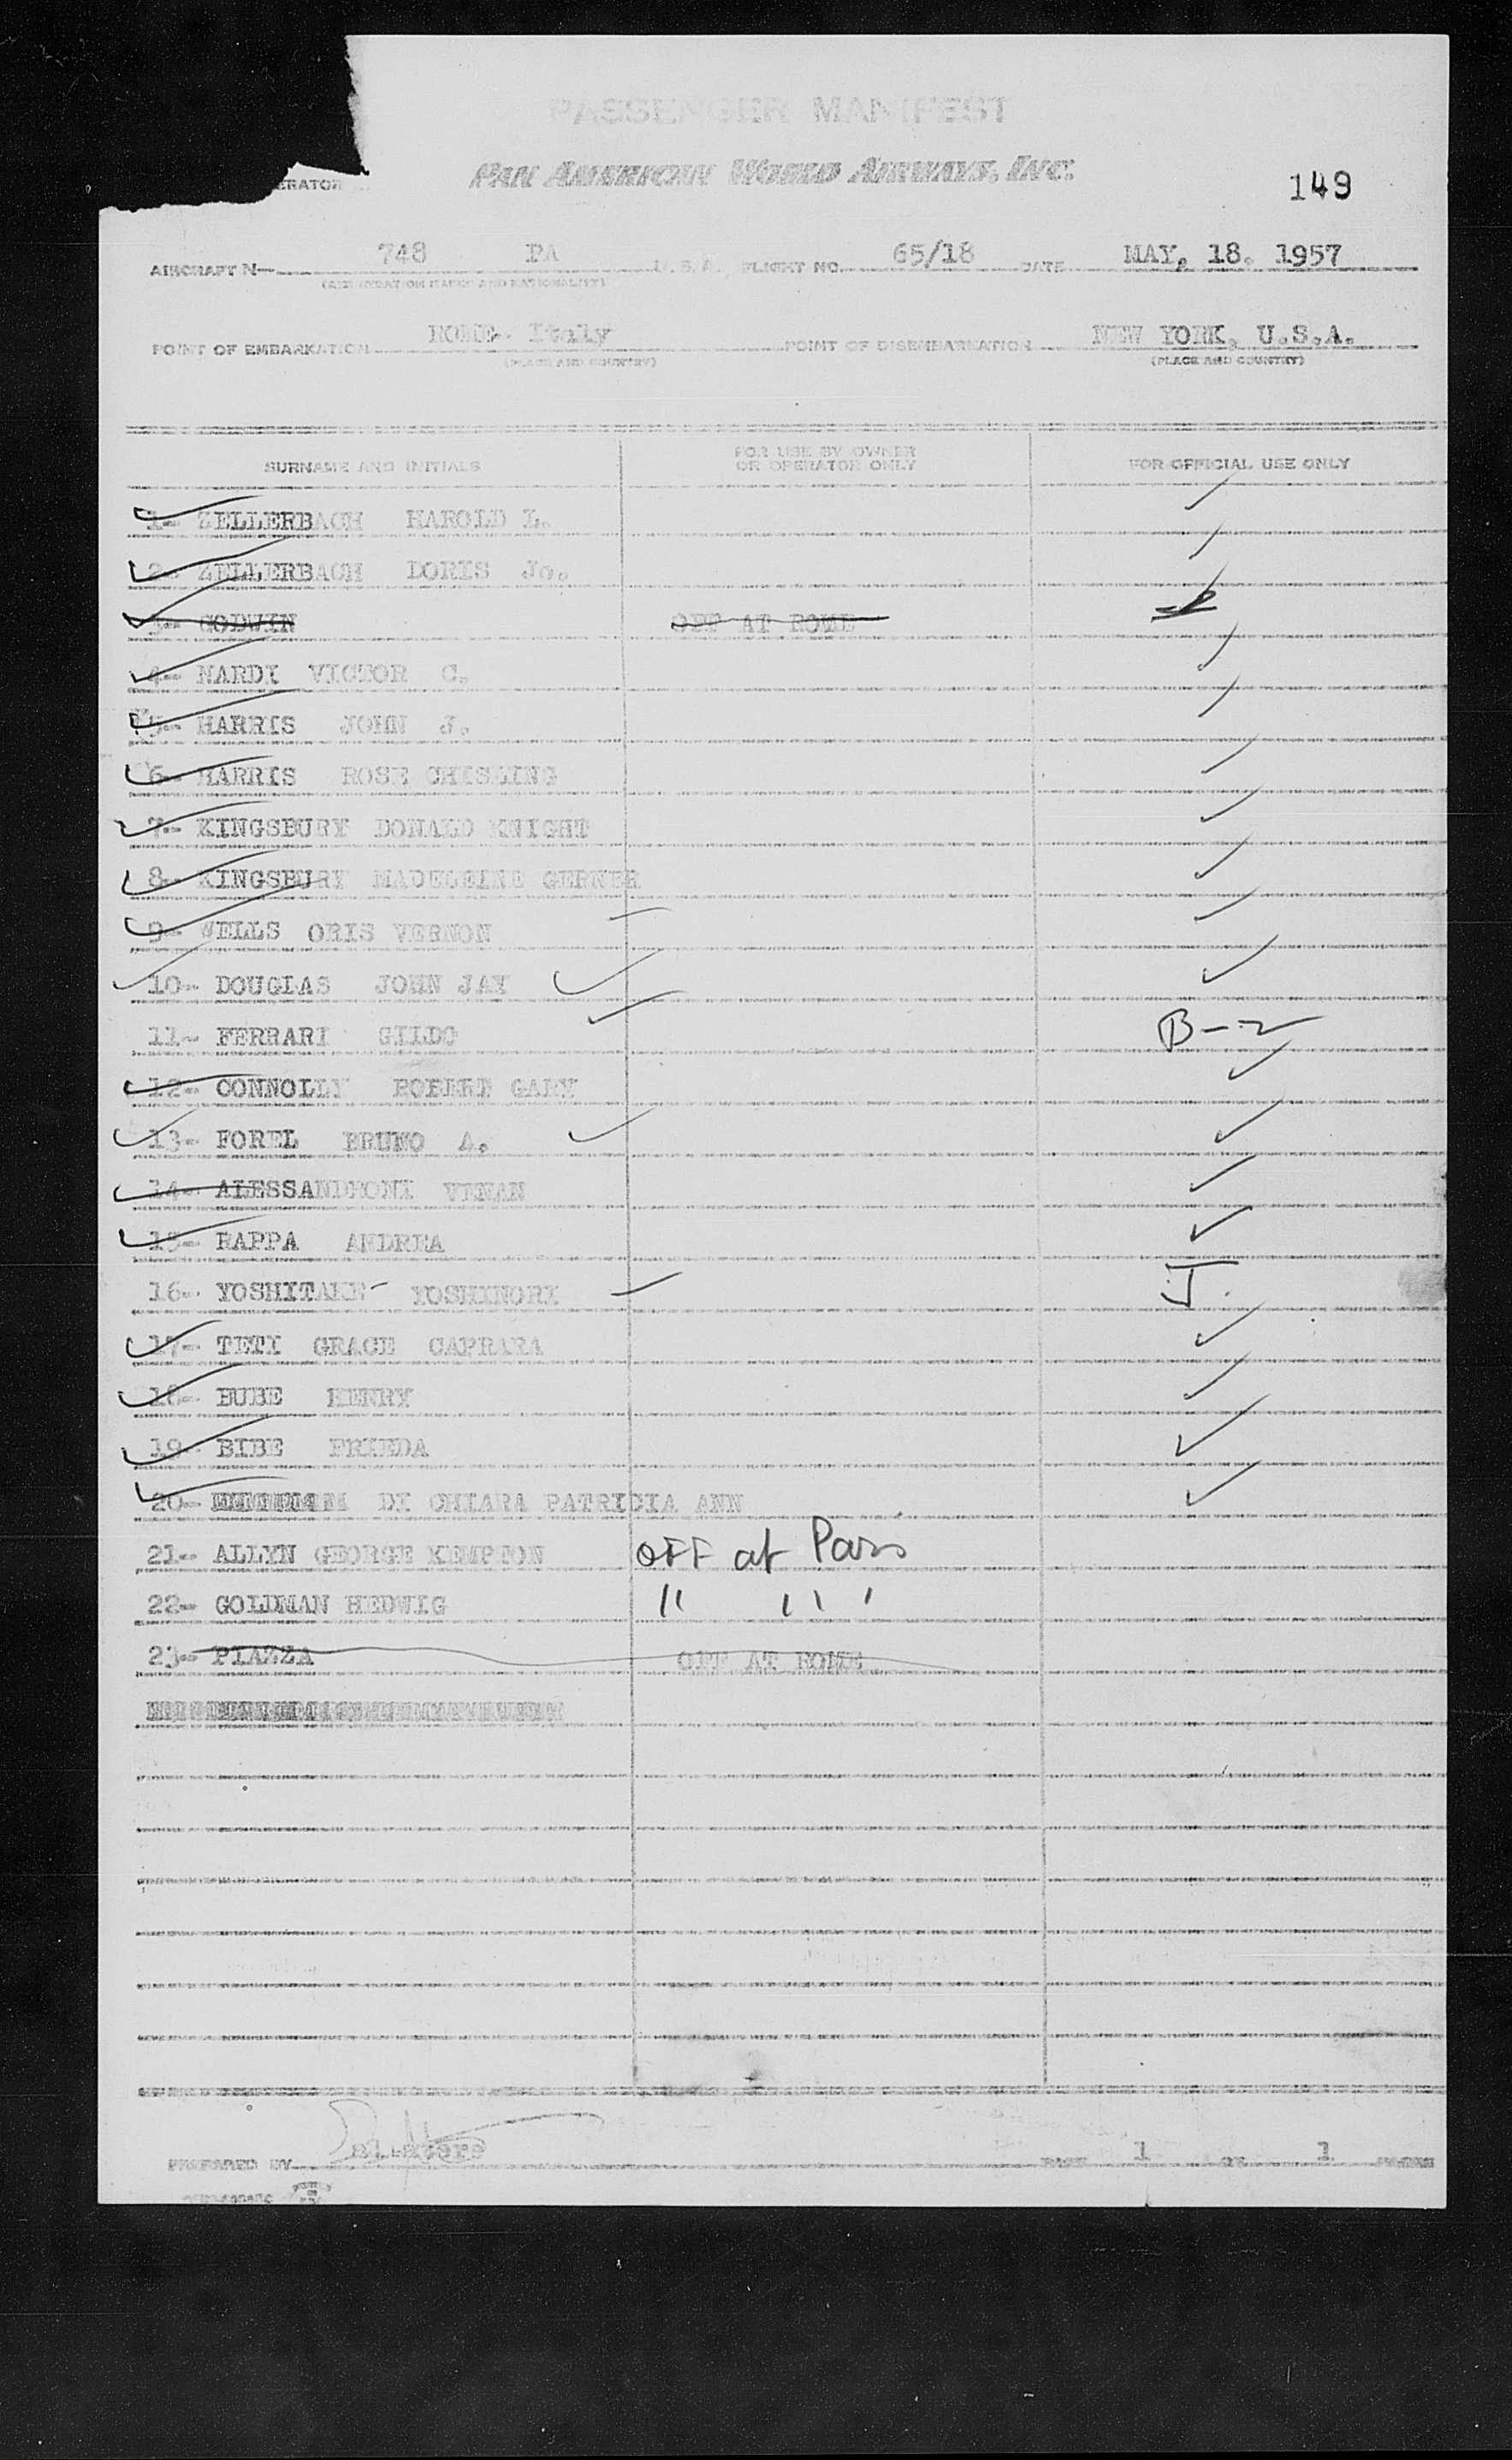 PASSENGER MANIFEST
ERATOR PAN AMERICAN WORLD AIRWAYS, INC.
149
AIRCRAFT N- 748 PA U.S.A. FLIGHT NO. 65/18 DATE MAY, 18. 1957
(REGISTRATION MARKS AND NATIONALITY)
POINT OF EMBARKATION ROME- Italy POINT OF DISEMBARKATION NEW YORK, U.S.A.
(PLACE AND COUNTRY) (PLACE AND COUNTRY)
SURNAME AND INITIALS FOR USE BY OWNER OR OPERATOR ONLY FOR OFFICIAL USE ONLY
1- ZELLERBACH HAROLD L.
2- ZELLERBACH DORIS Jo.
3- GODWIN OFF AT ROME
4- NARDI VICTOR C.
5- HARRIS JOHN J.
6- HARRIS ROSE CHISLING
7- KINGSBURY DONALD KNIGHT
8- KINGSBURY MADELEINE GERNER
9- WELLS ORIS VERNON
10- DOUGLAS JOHN JAY
11- FERRARI GILDO B-2
12- CONNOLLY ROBERT GARY
13- FOREL BRUNO A.
14- ALESSANDRONI VENAN
15- RAPPA ANDREA
16- YOSHITAKE- YOSHINORI J.
17- TETI GRACE CAPRARA
18- BUBE HENRY
19- BIBE FRIEDA
20- DI CHIARA PATRICIA ANN
21- ALLYN GEORGE KEMPTON OFF at Paris
22- GOLDMAN HEDWIG " " '
23- PIAZZA OFF AT ROME
PREPARED BY PAGE 1 OF 1 PAGES